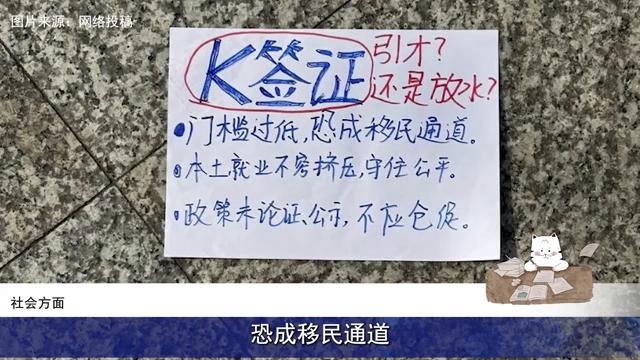 图片来源：网络投稿
K签证
引才？
还是放水？
门槛过低，恐成移民通道。
本土就业不容挤压，守住公平。
政策未论证、公示，不应仓促。
社会方面
恐成移民通道